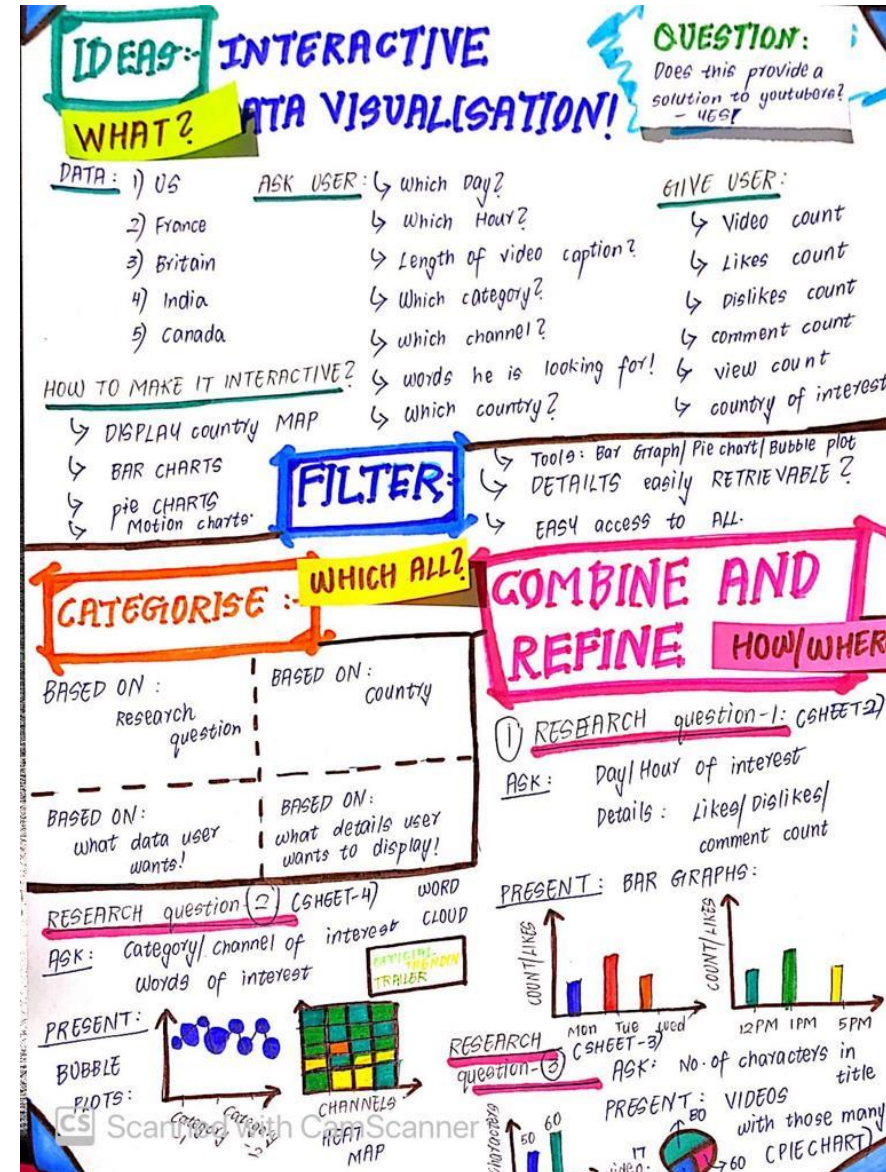 IDEAS:- INTERACTIVE
ATA VISUALISATION!
WHAT?
QUESTION:
Does this provide a
solution to youtubers?
- YES!
DATA: 1) US
2) France
3) Britain
4) India
5) Canada
ASK USER: ↳ Which Day?
↳ Which Hour?
↳ Length of video caption?
↳ Which category?
↳ which channel?
↳ words he is looking for!
↳ Which country?
GIVE USER:
↳ Video count
↳ Likes count
↳ Dislikes count
↳ comment count
↳ view count
↳ country of interest
HOW TO MAKE IT INTERACTIVE?
↳ DISPLAY country MAP
↳ BAR CHARTS
↳ pie CHARTS
↳ Motion charts.
FILTER:
↳ Tools: Bar Graph/ Pie chart/ Bubble plot
↳ DETAILTS easily RETRIEVABLE?
↳ EASY access to ALL.
CATEGORISE :-
WHICH ALL?
BASED ON :
Research
question
BASED ON :
country
BASED ON:
what data user
wants!
BASED ON:
what details user
wants to display!
COMBINE AND
REFINE
HOW/WHER
1 RESEARCH question-1: (SHEET2)
ASK: Day/Hour of interest
Details : Likes/ Dislikes/
comment count
PRESENT: BAR GRAPHS:
COUNT/LIKES
Mon Tue Wed
COUNT/LIKES
12PM 1PM 5PM
RESEARCH question 2 (SHEET-4)
ASK: Category/ channel of interest
words of interest
WORD
CLOUD
TRAILER
PRESENT:
BUBBLE
PLOTS:
Category
Category
CHANNELS
HEAT
MAP
RESEARCH
question-3
(SHEET-3)
ASK: No. of characters in
title
PRESENT: VIDEOS
with those many
(PIECHART)
50 60
17
80
60
CS Scanned with CamScanner